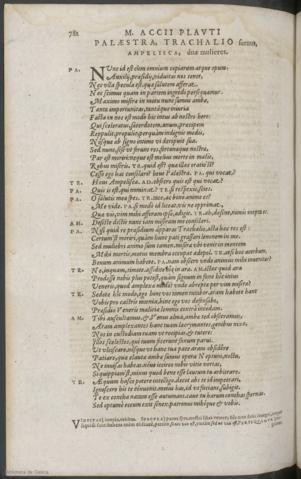 782 M. ACCII PLAVTI
PALÆSTRA, TRACHALIO seruus,
AMPELISCA, duæ mulieres.
PA. NVnc id est cùm omnium copiarum atque opum,
Auxilij, præsidij, viduitas nos tenet,
Nec vlla spes
Nec scimus quam in partem ingredi persequamur.
Maximo misera in metu nunc sumus ambæ,
Tanta importunitas, tantáque iniuria
Facta in nos est modò hic intus ab nostro hero:
Qui scelestus, sacerdotem, anum, præceps
Reppulit, propulit, perquàm indignis modis,
Nósque ab signo intimo vi deripuit sua.
Sed nunc, sese vt ferunt res, fortunæque nostræ,
Par est moriri, neque est melius morte in malis,
Rebus miseris. TR. quid est? quæ illæc oratio est?
Cesso ego has consolari? heus Palæstra. PA. qui vocat?
TR. Hem Ampelisca. AD. obsecro quis est qui vocat?
PA. Quis is est, qui nominat? TR. si respexis, scies.
PA. O salutis meæ spes. TR. tace, ac bono animo es:
Me vide. PA. si modò id liceat, vis ne opprimat,
Quæ vis, vim mihi afferam ipsa, adigit. TR. ah, desine, nimis inepta es.
AM. Desiste dictis nunc iam miseram me consolari.
PA. Nisi quid re præsidium apparas Trachalio, acta hæc res est:
Certum'st moriri, quàm hunc pati grassari lenonem in me.
Sed muliebri animo sum tamen, misera vbi venit in mentem
Mihi mortis, metus membra occupat
Bonum animum habete. PA. nam obsecro vnde animus mihi inuenitur?
TR. Ne, inquam, timete: assidite hîc in ara. AM. istæc quid ara
Prodesse nobis plus potest, quàm signum in fano hîc intus
Veneris, quod amplexæ modò, vnde abreptæ per vim miseræ?
TR. Sedete hîc modò, ego hinc vos tamen tutabor, aram habete hanc
Vobis pro castris: mœnia, hinc ego vos defensabo,
Præsidio Veneris malitiæ lenonis contrà incedam.
AM. Tibi auscultamus: & Venus alma, ambæ te obsecramus,
Aram amplexantes hanc tuam lacrymantes, genibus nixæ,
Nos in custodiam tuam vt recipias, & tutere:
Illos scelestos, qui tuum fecerunt fanum parui.
Vt vlciscare, nósque vt hanc tua pace aram obsidere
Patiare, quæ elautæ ambæ sumus opera Neptuni, noctu,
Ne inuisas habeas, néue idcirco nobis vitio vortas,
Si quippiam'st, minus quod bene esse lautum tu arbitrare.
TR. Æquum has petere intelligo: decet abs te id impetrari,
Ignoscere his te conuenit: metus has, id vt faciant, subigit.
Te ex concha natam esse autumant, caue tu harum conchas spernas.
Sed optumè eccum exit senex, patronus mihíque & vobis.